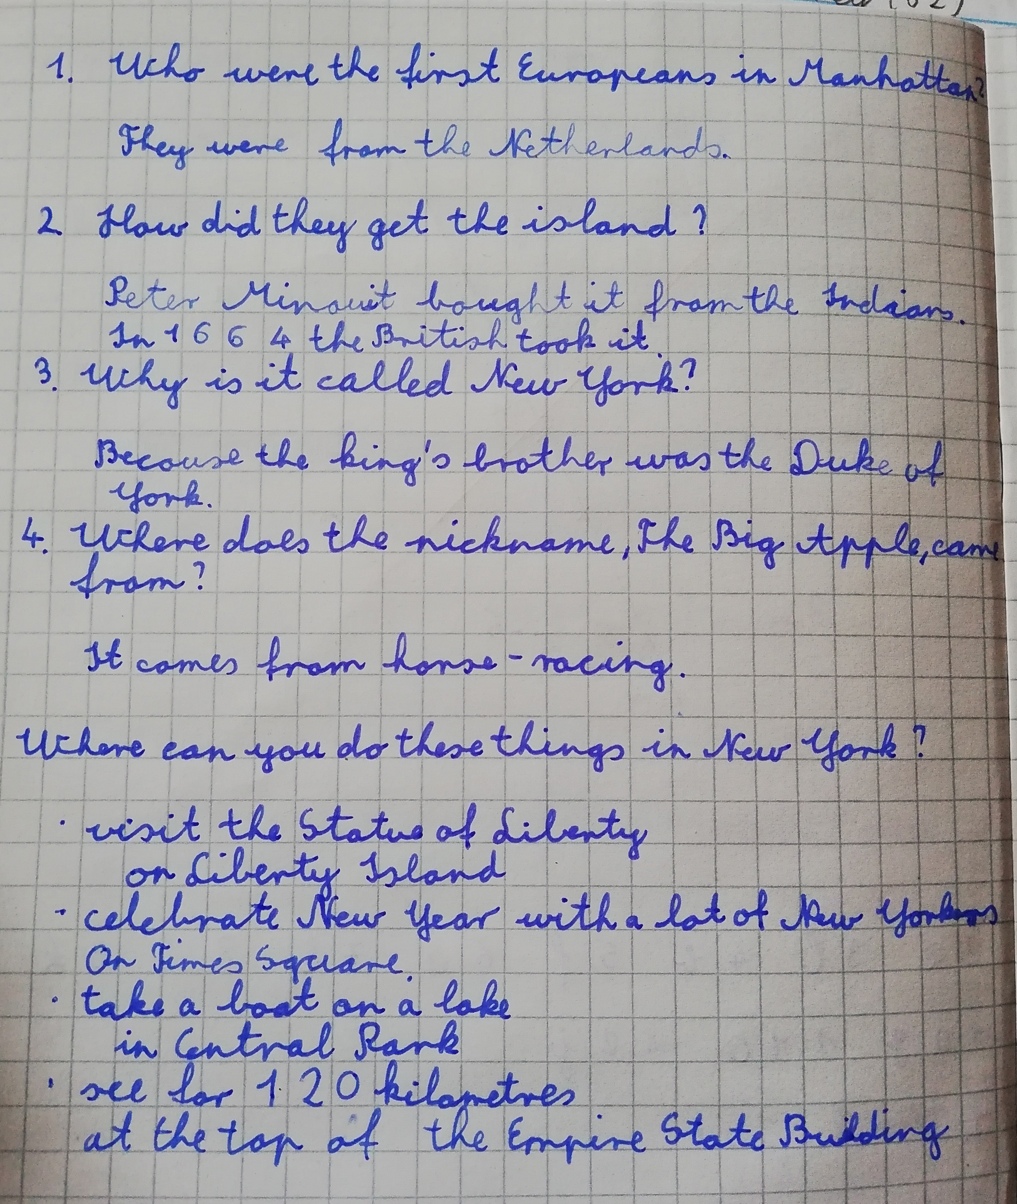 1. Who were the first Europeans in Manhattan?
They were from the Netherlands.
2 How did they get the island?
Peter Minouit bought it from the Indaians.
In 1664 the British took it.
3. Why is it called New York?
Becouse the king's brother was the Duke of
York.
4. Where does the nickname, The Big Apple, came
from?
It comes from horse-racing.
Where can you do these things in New York?
· visit the Statue of Liberty
on Liberty Island
· celebrate New Year with a lot of New Yorkers
On Times Square.
· take a boat on a lake
in Central Park
· see for 120 kilometres
at the top of the Empire State Building